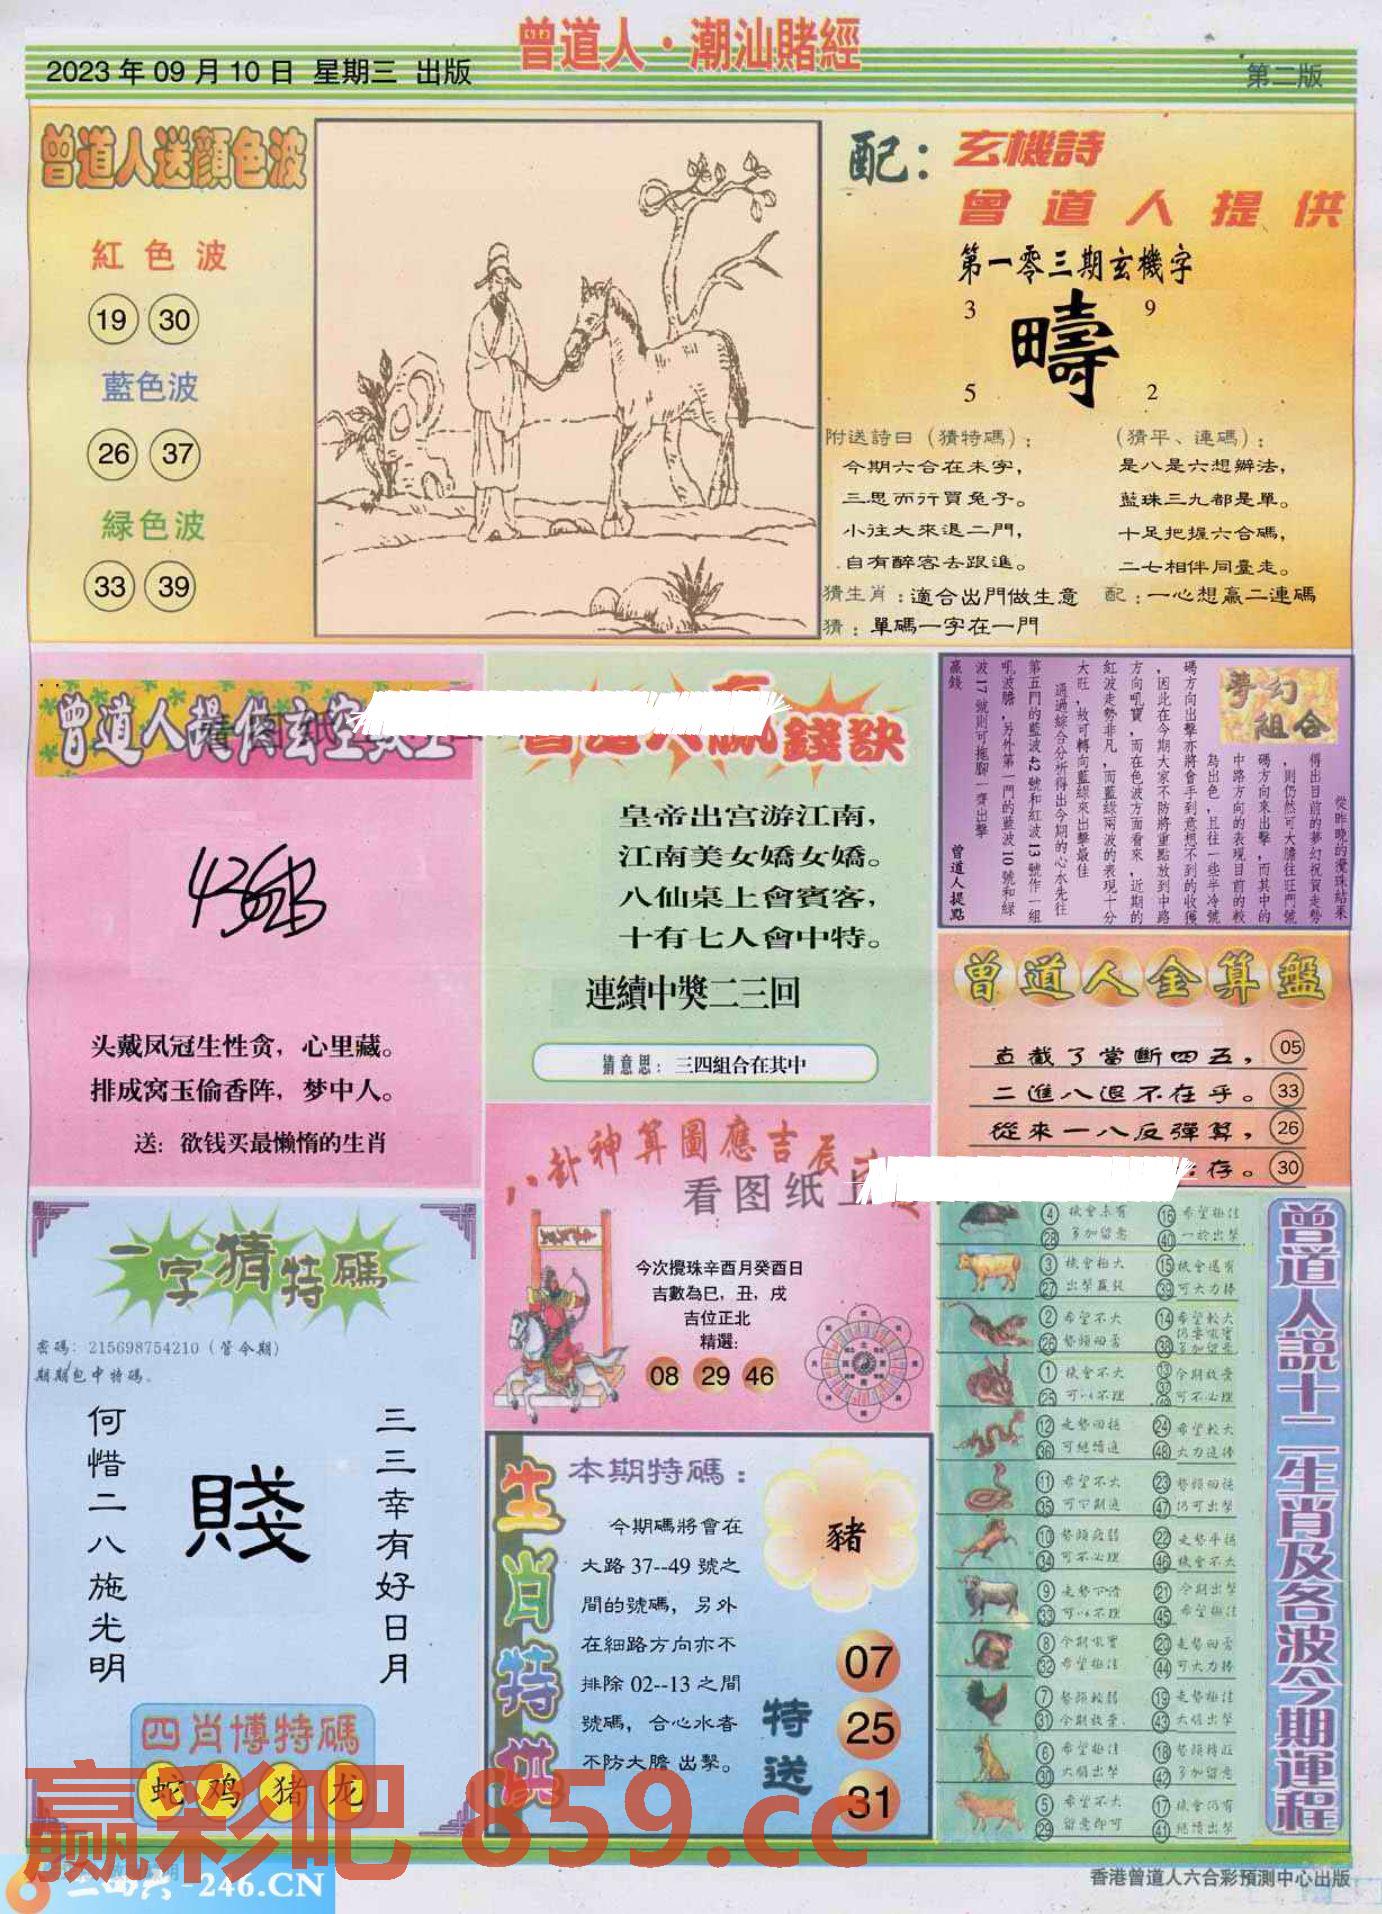 曾道人·潮汕賭經
2023年09月10日 星期三 出版
第二版
曾道人送顏色波
紅色波
19 30
藍色波
26 37
緑色波
33 39
配：玄機詩
曾道人提供
第一零三期玄機字
3 9
疇
5 2
附送詩曰（猜特碼）：
今期六合在未字，
三思而行買兔子。
小往大來退二門，
自有醉客去跟進。
猜生肖：適合出門做生意
猜：單碼一字在一門
（猜平、連碼）：
是八是六想辦法，
藍珠三九都是單。
十足把握六合碼，
二七相伴同臺走。
配：一心想贏二連碼
曾道人提供玄空
头戴凤冠生性贪，心里藏。
排成窝玉偷香阵，梦中人。
送：欲钱买最懒惰的生肖
曾道人贏錢訣
皇帝出宫游江南，
江南美女嬌女嬌。
八仙桌上會賓客，
十有七人會中特。
連續中獎二三回
猜意思：三四組合在其中
夢幻組合
從昨晚的攪珠結果
得出目前的夢幻祝賀走勢
，則仍然可大膽往旺門號
碼方向來出擊，而其中的
中路方向的表現目前的較
為出色，且往一些半冷號
碼方向出擊亦將會手到意想不到的收獲
，因此在今期大家不防將重點放到中路
方向吼寶，而在色波方面看來，近期的
紅波走勢非凡，而藍綠兩波的表現十分
大旺，故可轉向藍綠來出擊最佳
通過綜合分析得出今期的心水先往
第五門的藍波42號和紅波13號作一組
吼波膽，另外第一門的藍波10號和綠
波17號則可拖腳一齊出擊
贏錢
曾道人提點
曾道人金算盤
直截了當斷四五，05
二進八退不在乎。33
從來一八反彈算，26
存。30
八卦神算圖應吉辰
看图纸上
今次攪珠辛酉月癸酉日
吉數為巳，丑，戌
吉位正北
精選：
08 29 46
一字猜特碼
密碼：215698754210（管今期）
期期包中特碼。
三三幸有好日月
賤
何惜二八施光明
四肖博特碼
蛇 鸡 猪 龙
生肖特供
本期特碼：
今期碼將會在
大路37--49號之
間的號碼，另外
在細路方向亦不
排除02--13之間
號碼，合心水者
不防大膽出擊。
豬
特送
07
25
31
曾道人說十二生肖及各波今期運程
4 機會未有 16 希望極佳
28 多加留意 40 一於出擊
3 機會極大 15 機會還有
27 出擊贏錢 39 可大力捧
2 希望不大 14 希望較大
26 38
1 機會不大 13 今期放棄
25 可以不理 可不必理
12 走勢回穩 24 希望較大
36 可繼續追 48 大力追捧
11 希望不大 23 勢頭回穩
35 47 仍可出擊
10 勢頭疲弱 22 走勢平穩
34 可不必理 46 機會不大
9 走勢下滑 21 今期出擊
33 可以不理 45 希望極佳
8 今期吼實 20
32 希望極佳 44 可大力捧
7 勢頭較弱 19 走勢極佳
31 今期放棄 43 大膽出擊
6 希望極佳 18 勢頭轉旺
30 大膽出擊 42 多加留意
5 希望不大 17 機會仍有
29 留意即可 41 繼續出擊
赢彩吧 859.cc
二四六 - 246.CN
香港曾道人六合彩預測中心出版